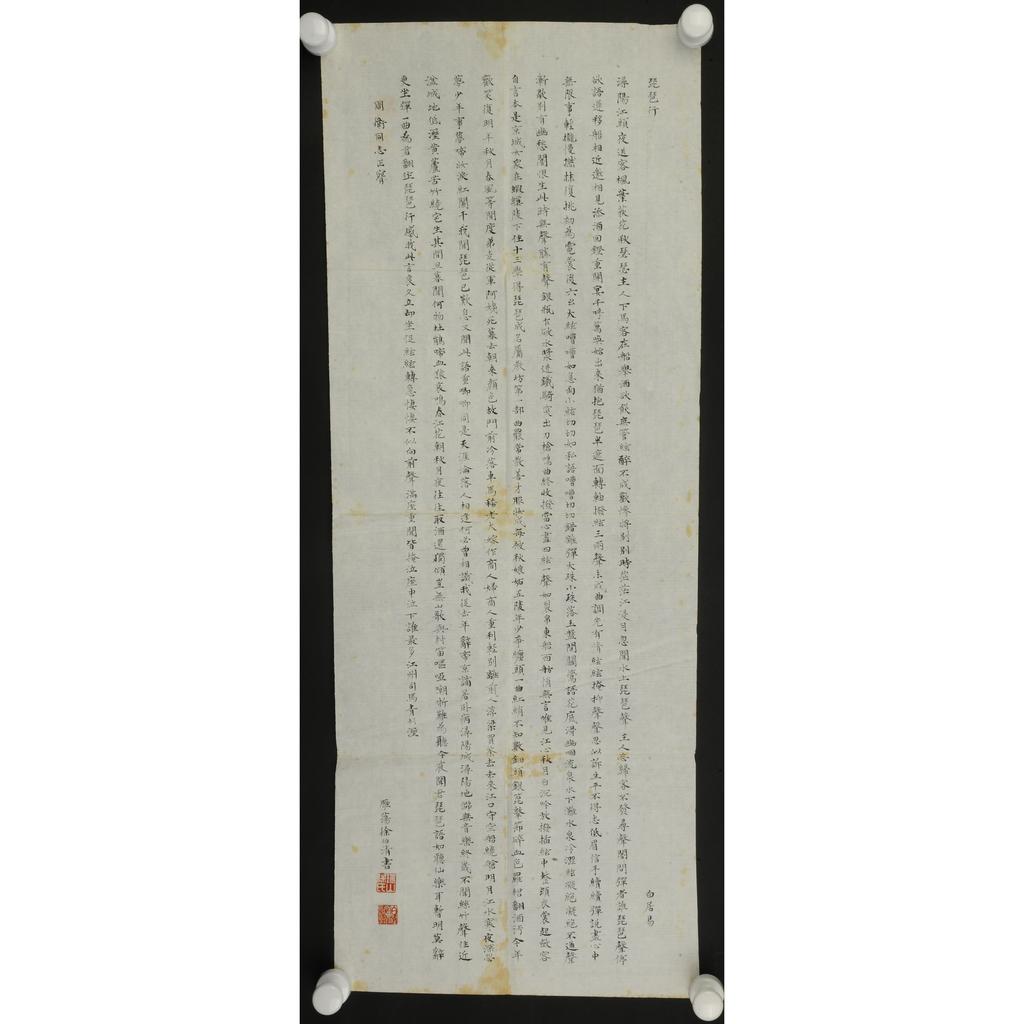 琵琶行
白居易
潯陽江頭夜送客楓葉荻花秋瑟瑟主人下馬客在船舉酒欲飲無管絃醉不成歡慘將別別時茫茫江浸月忽聞水上琵琶聲主人忘歸客不發尋聲闇問彈者誰琵琶聲停
欲語遲移船相近邀相見添酒回燈重開宴千呼萬喚始出來猶抱琵琶半遮面轉軸撥絃三兩聲未成曲調先有情絃絃掩抑聲聲思似訴生平不得志低眉信手續續彈說盡心中
無限事輕攏慢撚抹復挑初為霓裳後六幺大絃嘈嘈如急雨小絃切切如私語嘈嘈切切錯雜彈大珠小珠落玉盤間關鶯語花底滑幽咽流泉水下灘水泉冷澀絃凝絕凝絕不通聲
漸歇別有幽愁闇恨生此時無聲勝有聲銀瓶乍破水漿迸鐵騎突出刀槍鳴曲終收撥當心畫四絃一聲如裂帛東船西舫悄無言唯見江心秋月白沉吟放撥插絃中整頓衣裳起斂容
自言本是京城女家在蝦蟆陵下住十三學得琵琶成名屬教坊第一部曲罷常教善才服妝成每被秋娘妒五陵年少爭纏頭一曲紅綃不知數鈿頭銀篦擊節碎血色羅裙翻酒污今年
歡笑復明年秋月春風等閒度弟走從軍阿姨死暮去朝來顏色故門前冷落車馬稀老大嫁作商人婦商人重利輕別離前月浮梁買茶去去來江口守空船繞艙明月江水寒夜深忽
夢少年事夢啼妝淚紅闌干我聞琵琶已歎息又聞此語重唧唧同是天涯淪落人相逢何必曾相識我從去年辭帝京謫居臥病潯陽城潯陽地僻無音樂終歲不聞絲竹聲住近
湓城地低濕黃蘆苦竹繞宅生其間旦暮聞何物杜鵑啼血猿哀鳴春江花朝秋月夜往往取酒還獨傾豈無山歌與村笛嘔啞嘲哳難為聽今夜聞君琵琶語如聽仙樂耳暫明莫辭
更坐彈一曲為君翻作琵琶行感我此言良久立卻坐促絃絃轉急悽悽不似向前聲滿座重聞皆掩泣座中泣下誰最多江州司馬青衫濕
衡同志正
雁蕩徐伯清書